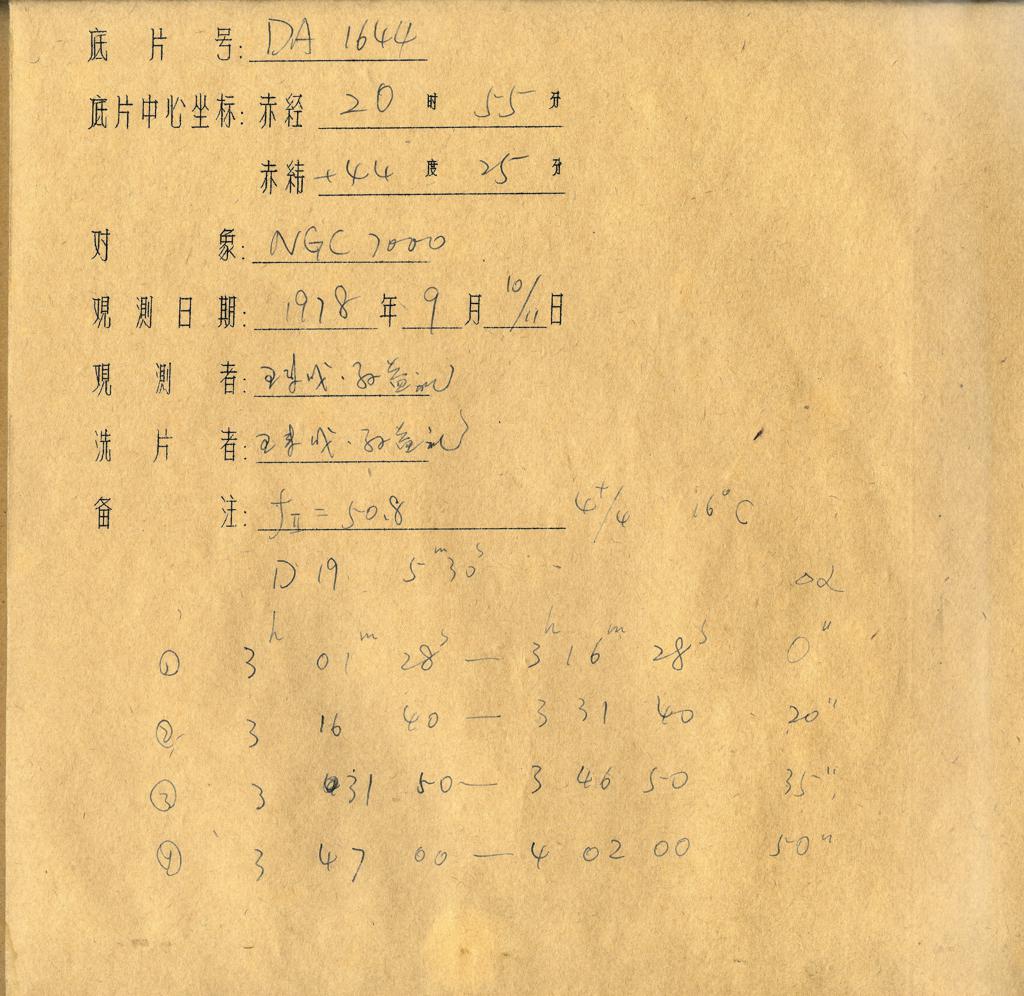 底片号: DA 1644
底片中心坐标: 赤经 20 时 55 分
赤纬 +44 度 25 分
对象: NGC 7000
观测日期: 1978 年 9 月 10/11 日
观测者: 王 · 孙益礼
洗片者: 王 · 孙益礼
备注: fII = 50.8 4+/4 16°C
D 19 5m 30s Δα
① 3h 01m 28s — 3h 16m 28s 0"
② 3 16 40 — 3 31 40 20"
③ 3 31 50 — 3 46 50 35"
④ 3 47 00 — 4 02 00 50"